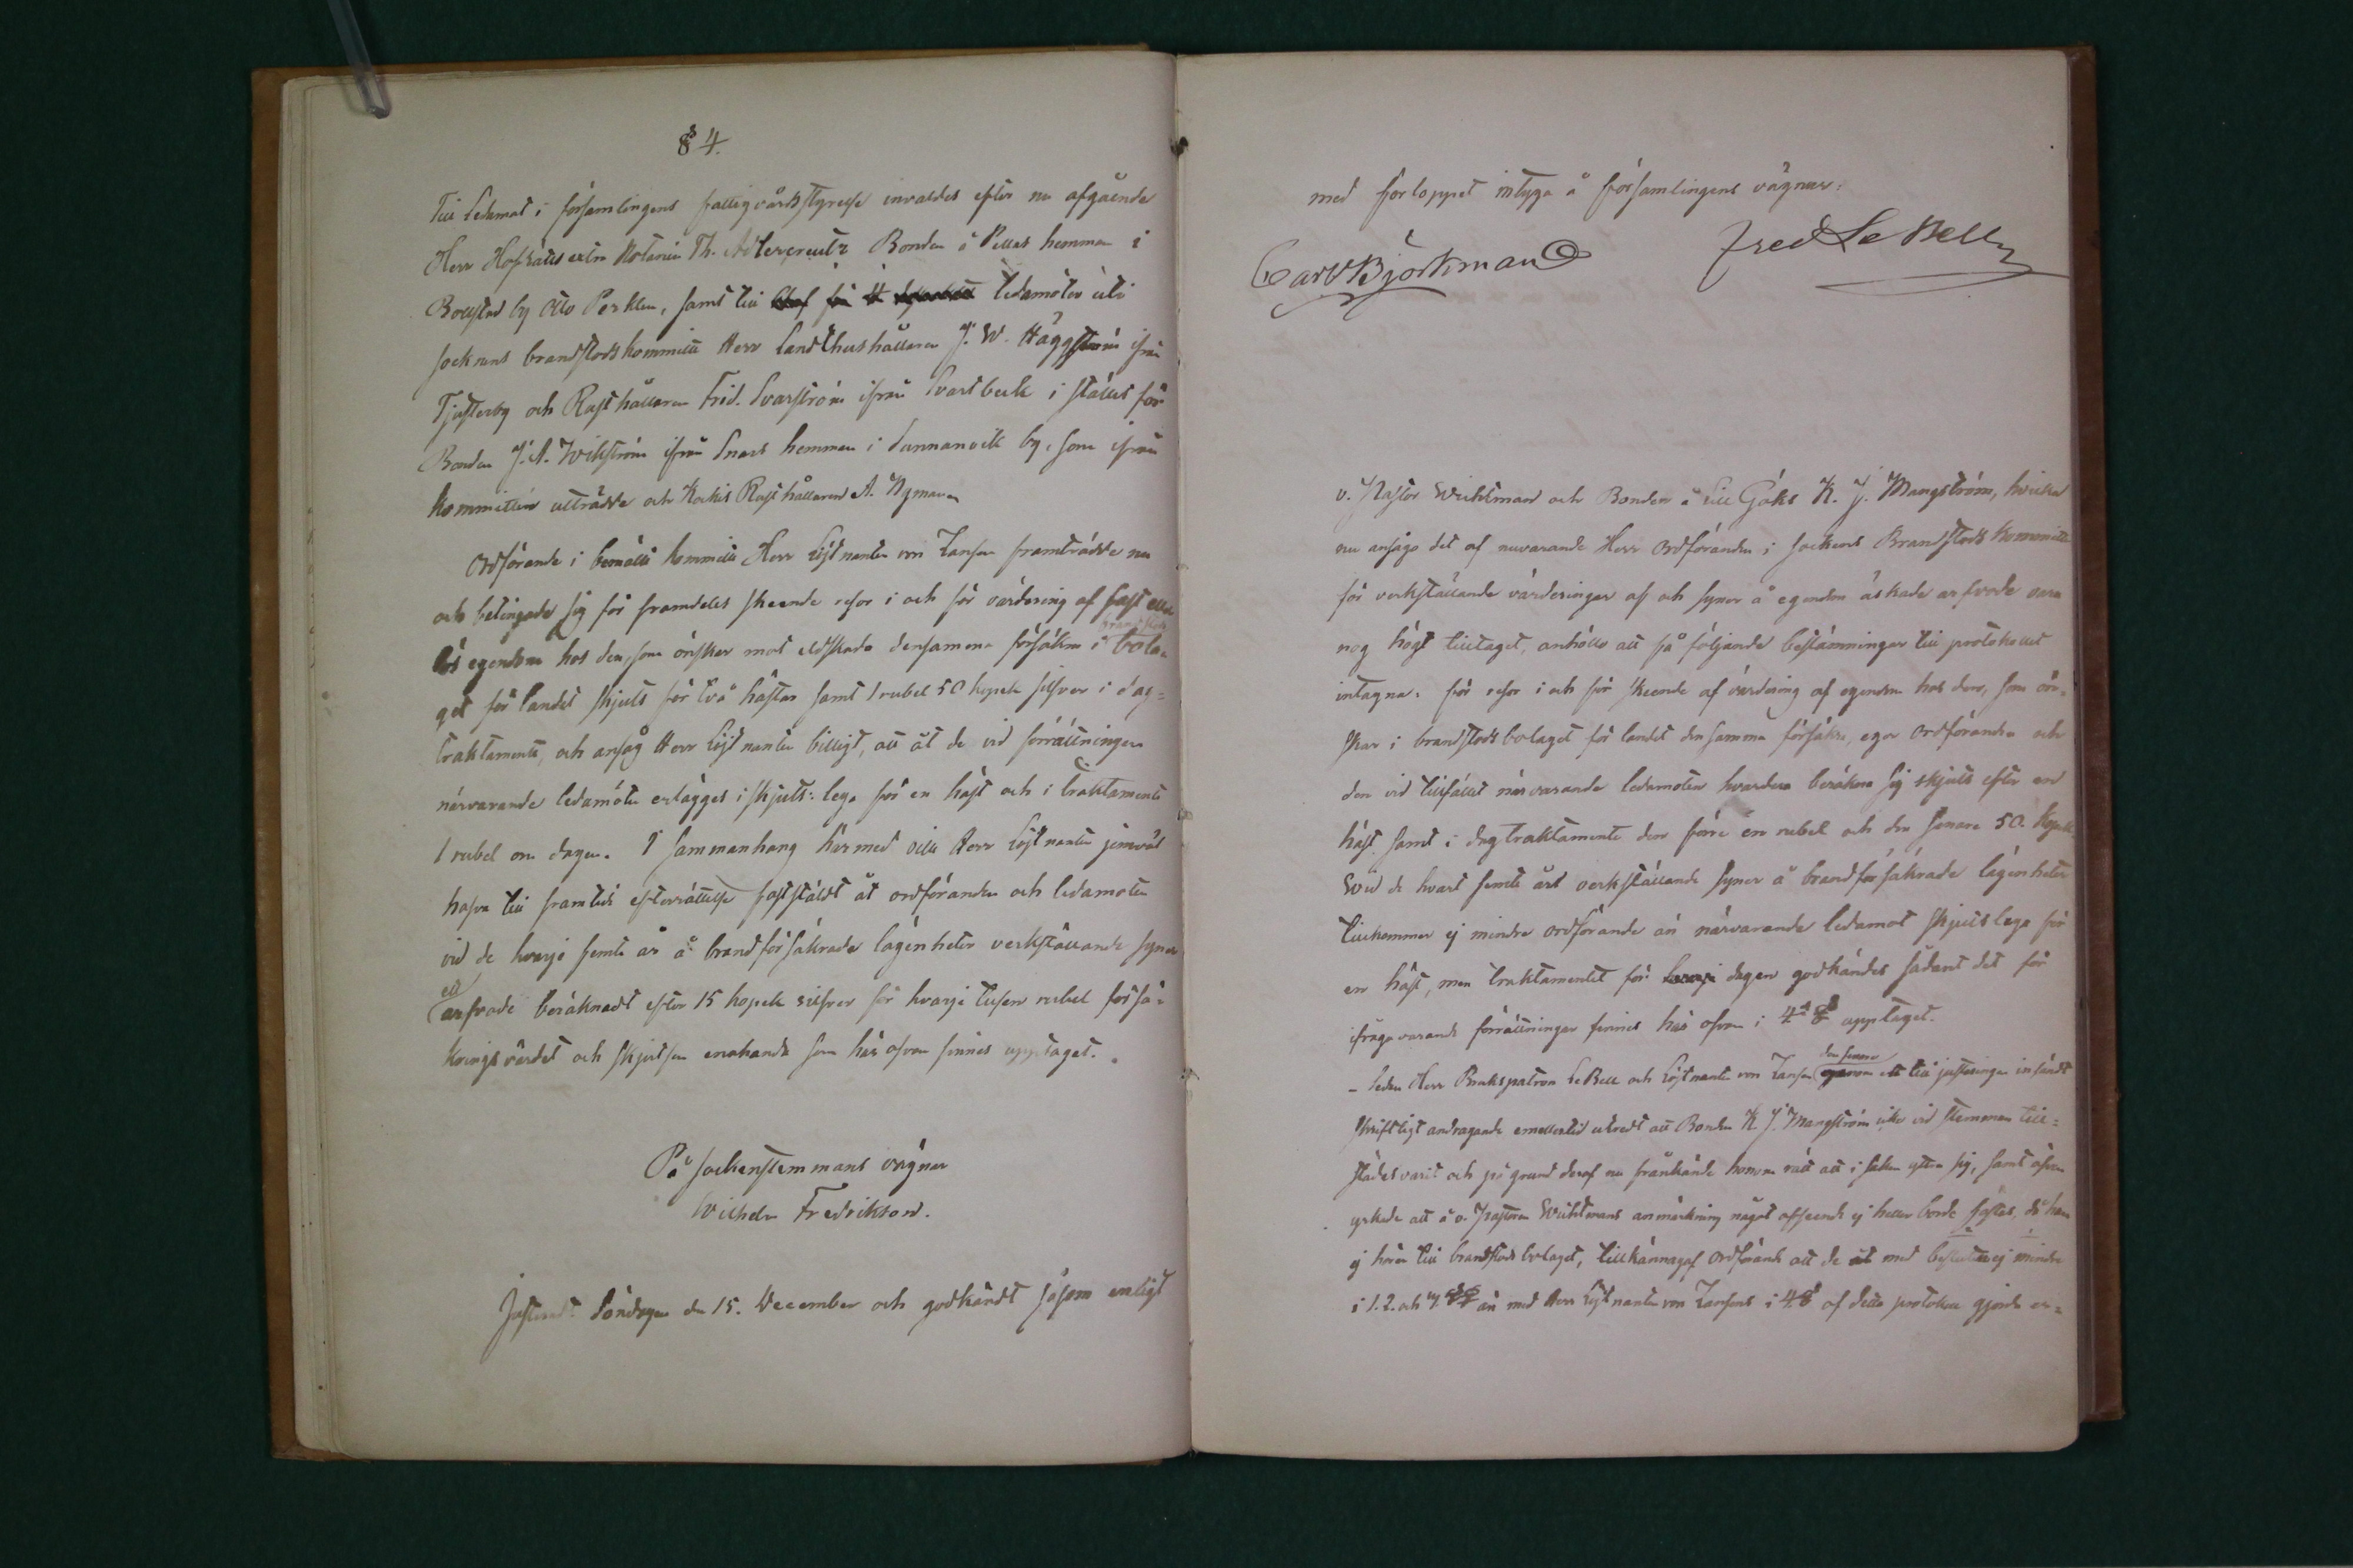 § 4.
Till Ledamot i församlingens fattigvårdsstyrelse invaldes efter nu afgående
Herr Hofrätts extra Notarien Th. Adlercreutz Bonden å Pellas hemman i
Bollstad by Otto Perklen, samt till ledamöter uti
socknens brandstodskommitté Herr Landthushållaren J. W. Häggström ifrån
Tjusterby och Rusthållaren Frid. Svarström ifrån Svartbeck i stället för
Bonden J. A. Wikström ifrån Snars hemman i Sannanvik by, som ifrån
kommittén utträdde och Kockis Rusthållaren A. Nyman
Ordförande i bemälte kommitté Herr Löjtnanten von Zansen framträdde nu
och betingade sig för framdeles skeende resor i och för värdering af fast eller
lös egendom hos den, som önskar mot eldskada densamma försäkra i brandstods bola-
get för landet skjuts för två hästar samt 1 rubel 50 kopek silfver i dag-
traktamente, och ansåg Herr Löjtnanten billigt, att åt de vid förrättningen
närvarande ledamöter erlägges i skjuts-lega för en häst och i traktamente
1 rubel om dagen. I sammanhang härmed ville Herr Löjtnanten jemväl
hafva till framtida efterrättelse fastställdt åt ordföranden och ledamoten
vid de hvarje femte år å brandförsäkrade lägenheter verkställande syner
ett arfvode beräknadt efter 15 kopek silfver för hvarje tusen rubel försä-
kringsvärdet och skjutsen enahanda som här ofvan finnes upptaget.
På sockenstemmans vägnar
Wilhelm Fredrikson.
Justerad Söndagen den 15. December och godkändt såsom enligt
med förloppet intyga å församlingens vägnar:
Carl Björkman Fred Le Bell
v. Pastor Wichtman och Bonden å Lill Gåks K. J. Mangström, hvilka
nu ansågo det af nuvarande Herr Ordföranden i sockens Brandstods Kommitté
för verkställande värderingar af och syner å egendom äskade arfvode vara
nog högt tilltaget, anhöllo att få följande bestämningar till protokollet
intagna: för resor i och för skeende af värdering af egendom hos den, som ön-
skar i brandstodsbolaget för landet densamma försäkra, eger ordföranden och
den vid tillfället närvarande ledamoten hvardera beräkna sig skjuts efter en
häst samt i dagtraktamente den förre en rubel och den senare 50. kopek
Wid de hvart femte års verkställande syner å brandförsäkrade lägenheter
tillkommer ej mindre ordförande än närvarande ledamot skjutslega för
en häst, men traktamentet för dagen godkändes sådant det för
ifrågavarande förrättningar finnes här ofvan i 4 § upptaget.
- Sedan Herr Brukspatron LeBell och Löjtnanten von Zansen den senare ett till justeringen insändt
skriftligt andragande emellertid utredt att Bonden K J. Mangström icke vid stemman till-
städes varit och på grund deraf nu frånkände honom rätt att i saken yttra sig, samt äfven
yrkade att å v. Pastorn Wichtmans anmärkning något afseende ej heller borde fästas, då han
ej hörer till brandstodsbolaget, tillkännagaf Ordförande att de med besluten ej mindre
i 1. 2. och än med Herr Löjtnanten von Zansens i 4 § af detta protokoll gjorda er-